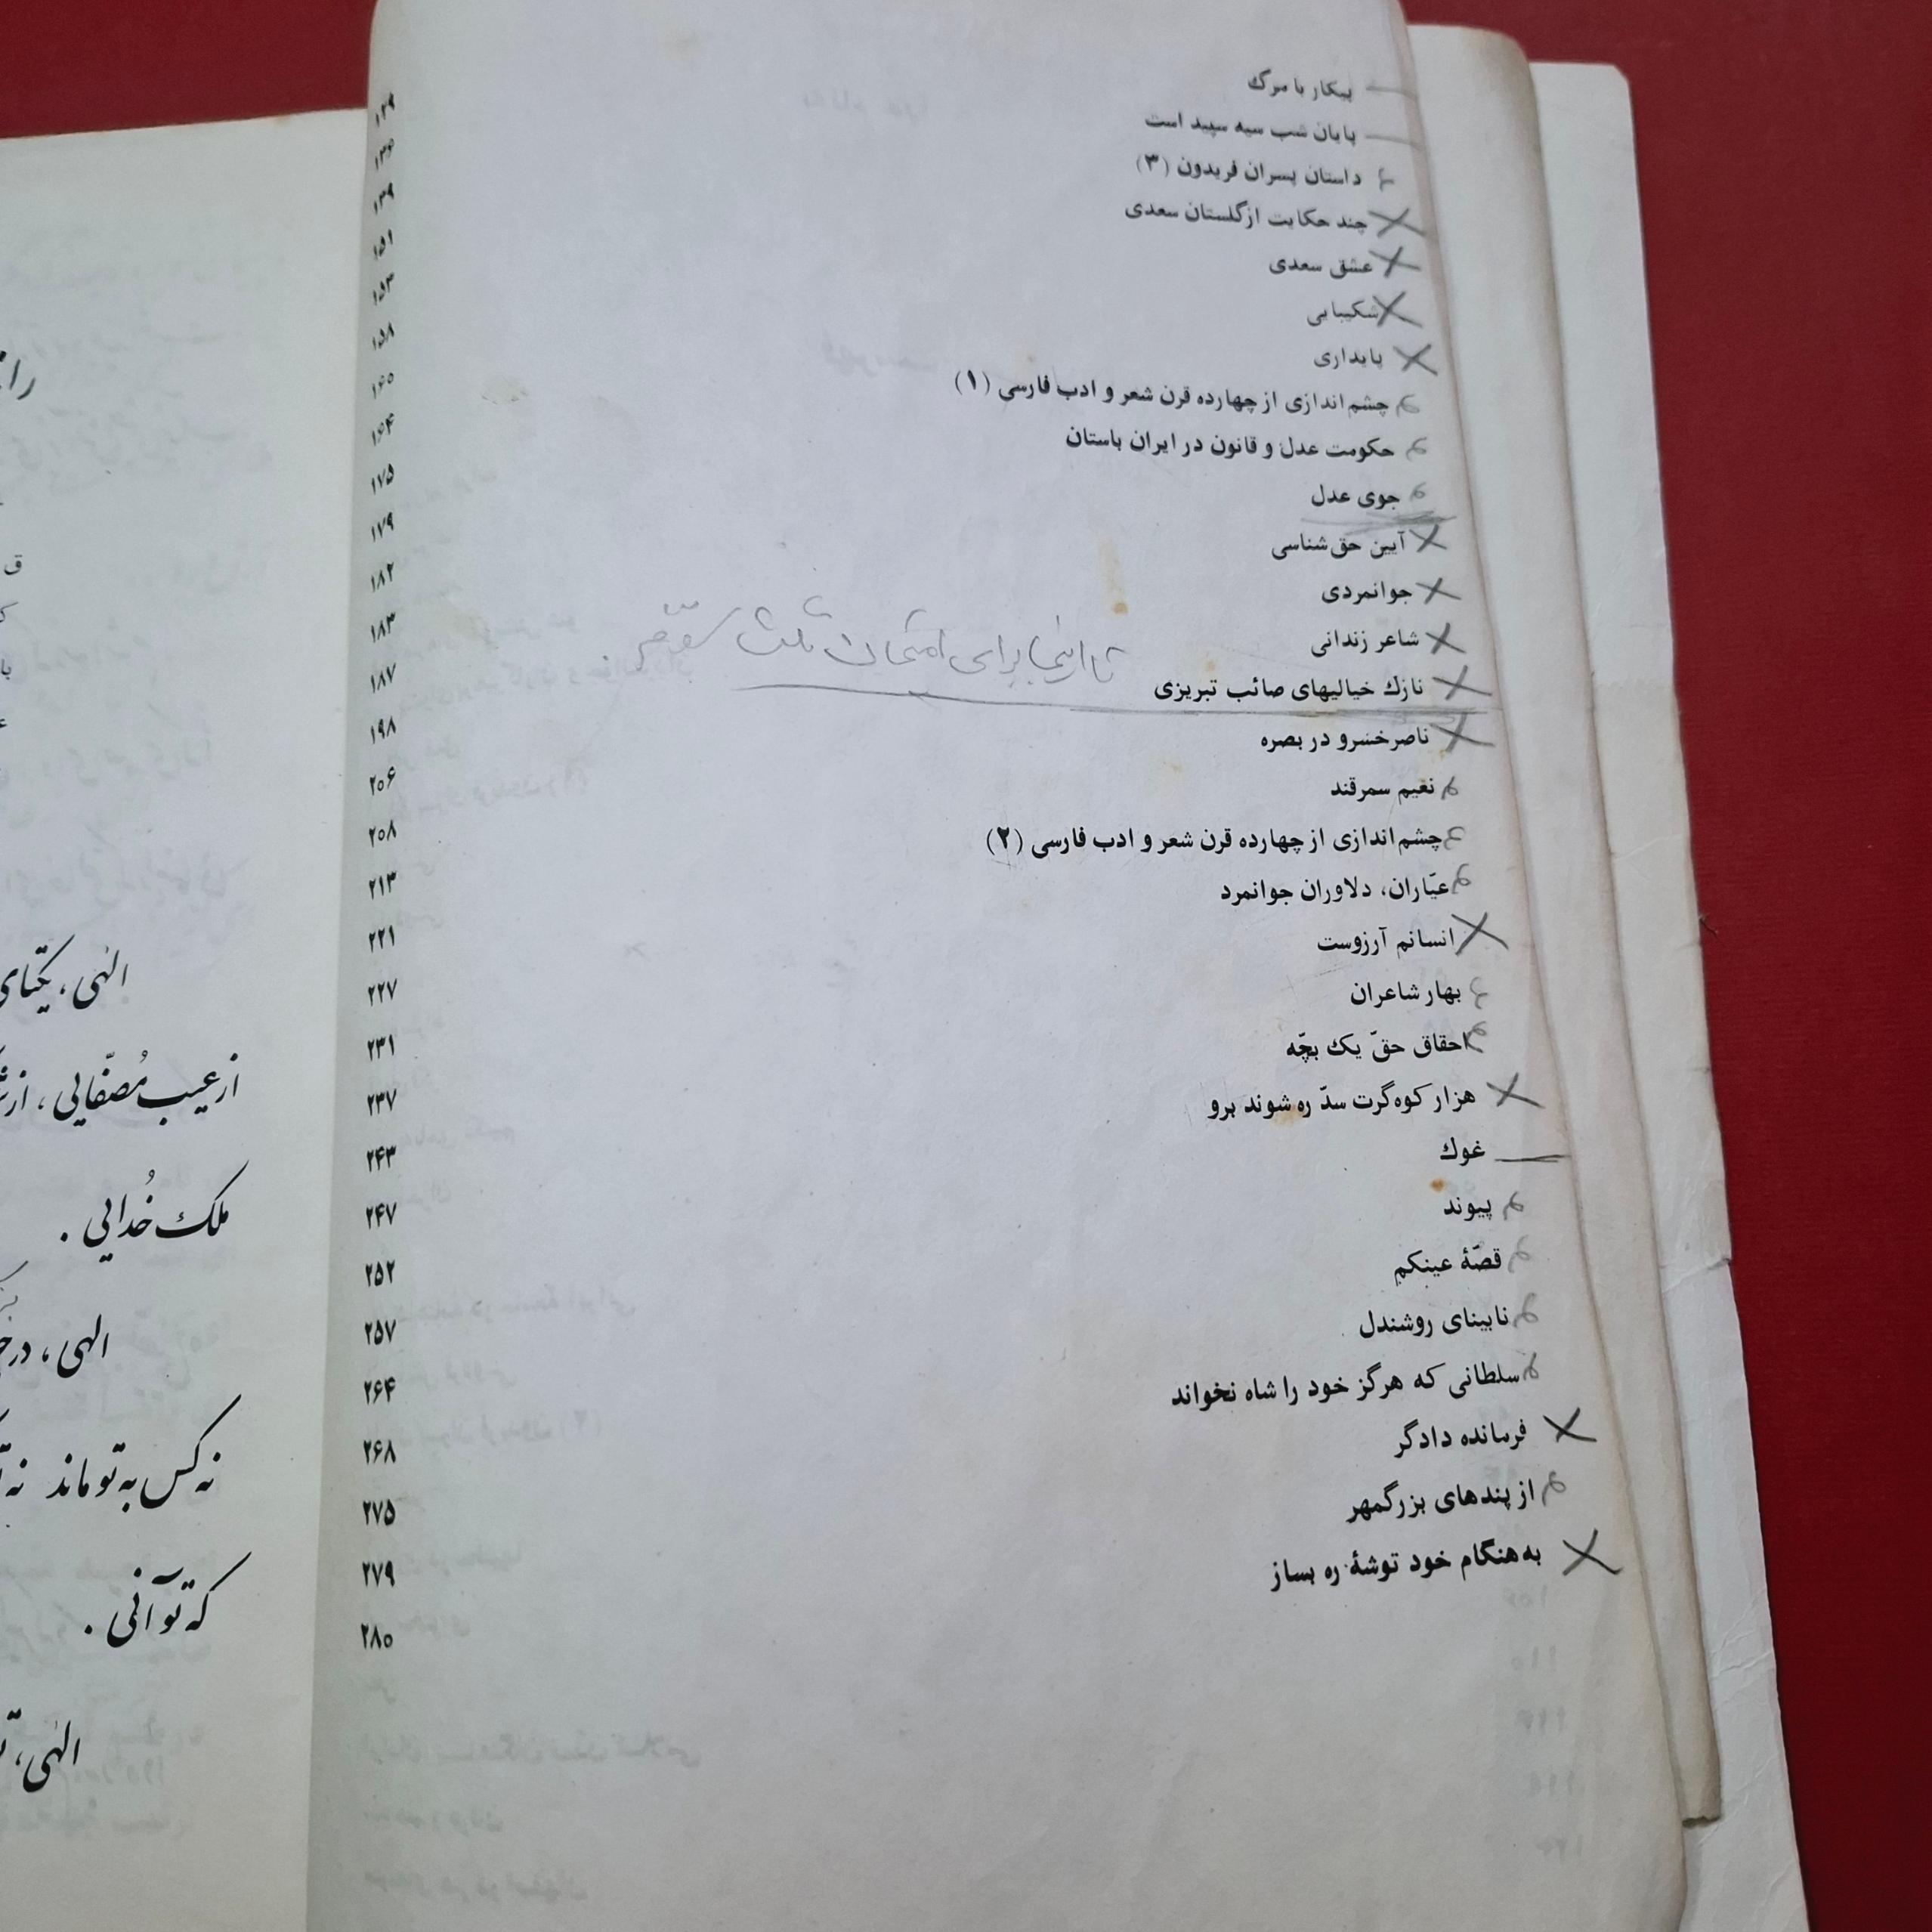 پیکار با مرگ
پایان شب سیه سپید است
داستان پسران فریدون (۳)
چند حکایت از گلستان سعدی ۱۵۱
عشق سعدی ۱۵۳
شکیبایی ۱۵۸
پایداری ۱۶۰
چشم‌اندازی از چهارده قرن شعر و ادب فارسی (۱) ۱۶۴
حکومت عدل و قانون در ایران باستان ۱۷۵
جوی عدل ۱۷۹
آیین حق‌شناسی ۱۸۲
جوانمردی ۱۸۳
شاعر زندانی ۱۸۷
تا اینجا برای امتحان ثلث
نازك خیالیهای صائب تبریزی ۱۹۸
ناصرخسرو در بصره ۲۰۶
نعیم سمرقند ۲۰۸
چشم‌اندازی از چهارده قرن شعر و ادب فارسی (۲) ۲۱۳
عیّاران، دلاوران جوانمرد ۲۲۱
انسانم آرزوست ۲۲۷
بهار شاعران ۲۳۱
احقاق حقّ یک بچّه ۲۳۷
هزار کوه‌گرت سدّ ره شوند برو ۲۴۳
غوك ۲۴۷
پیوند ۲۵۲
قصّهٔ عینکم ۲۵۷
نابینای روشندل ۲۶۴
سلطانی که هرگز خود را شاه نخواند ۲۶۸
فرمانده دادگر ۲۷۵
از پندهای بزرگمهر ۲۷۹
به هنگام خود توشهٔ ره بساز ۲۸۰
الهی، یکتای
از عیب مُصفّایی، از
ملک خُدایی.
الهی،
نه کس به تو ماند نه
که تو آنی.
الهی،